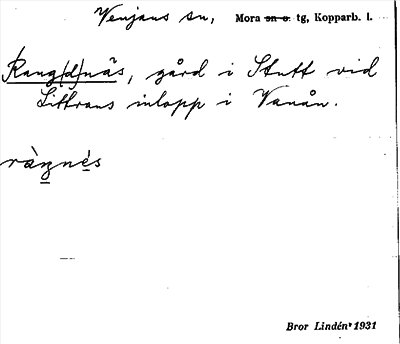 Venjans sn, Mora sn o. tg, Kopparb. l.
Rang(d)näs, gård i Stutt vid
Littrans inlopp i Vanån.
ràŋnés
Bror Lindén 1931